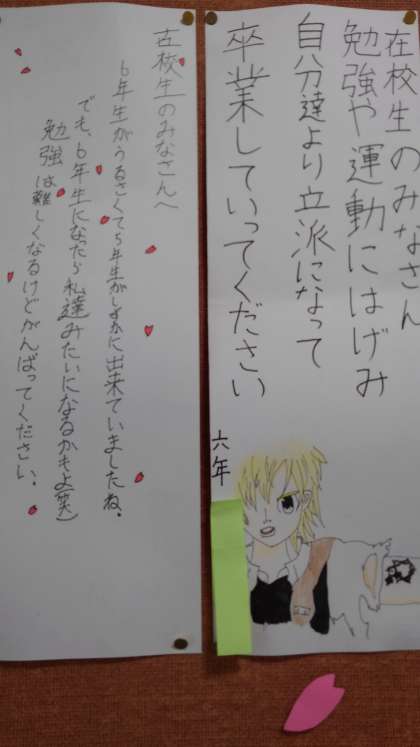 在校生のみなさん
勉強や運動にはげみ
自分達より立派になって
卒業していってください
六年
在校生のみなさんへ
6年生がうるさくて5年生がしずかに出来ていましたね。
でも、6年生になったら私達みたいになるかもよ(笑)
勉強は難しくなるけどがんばってください。